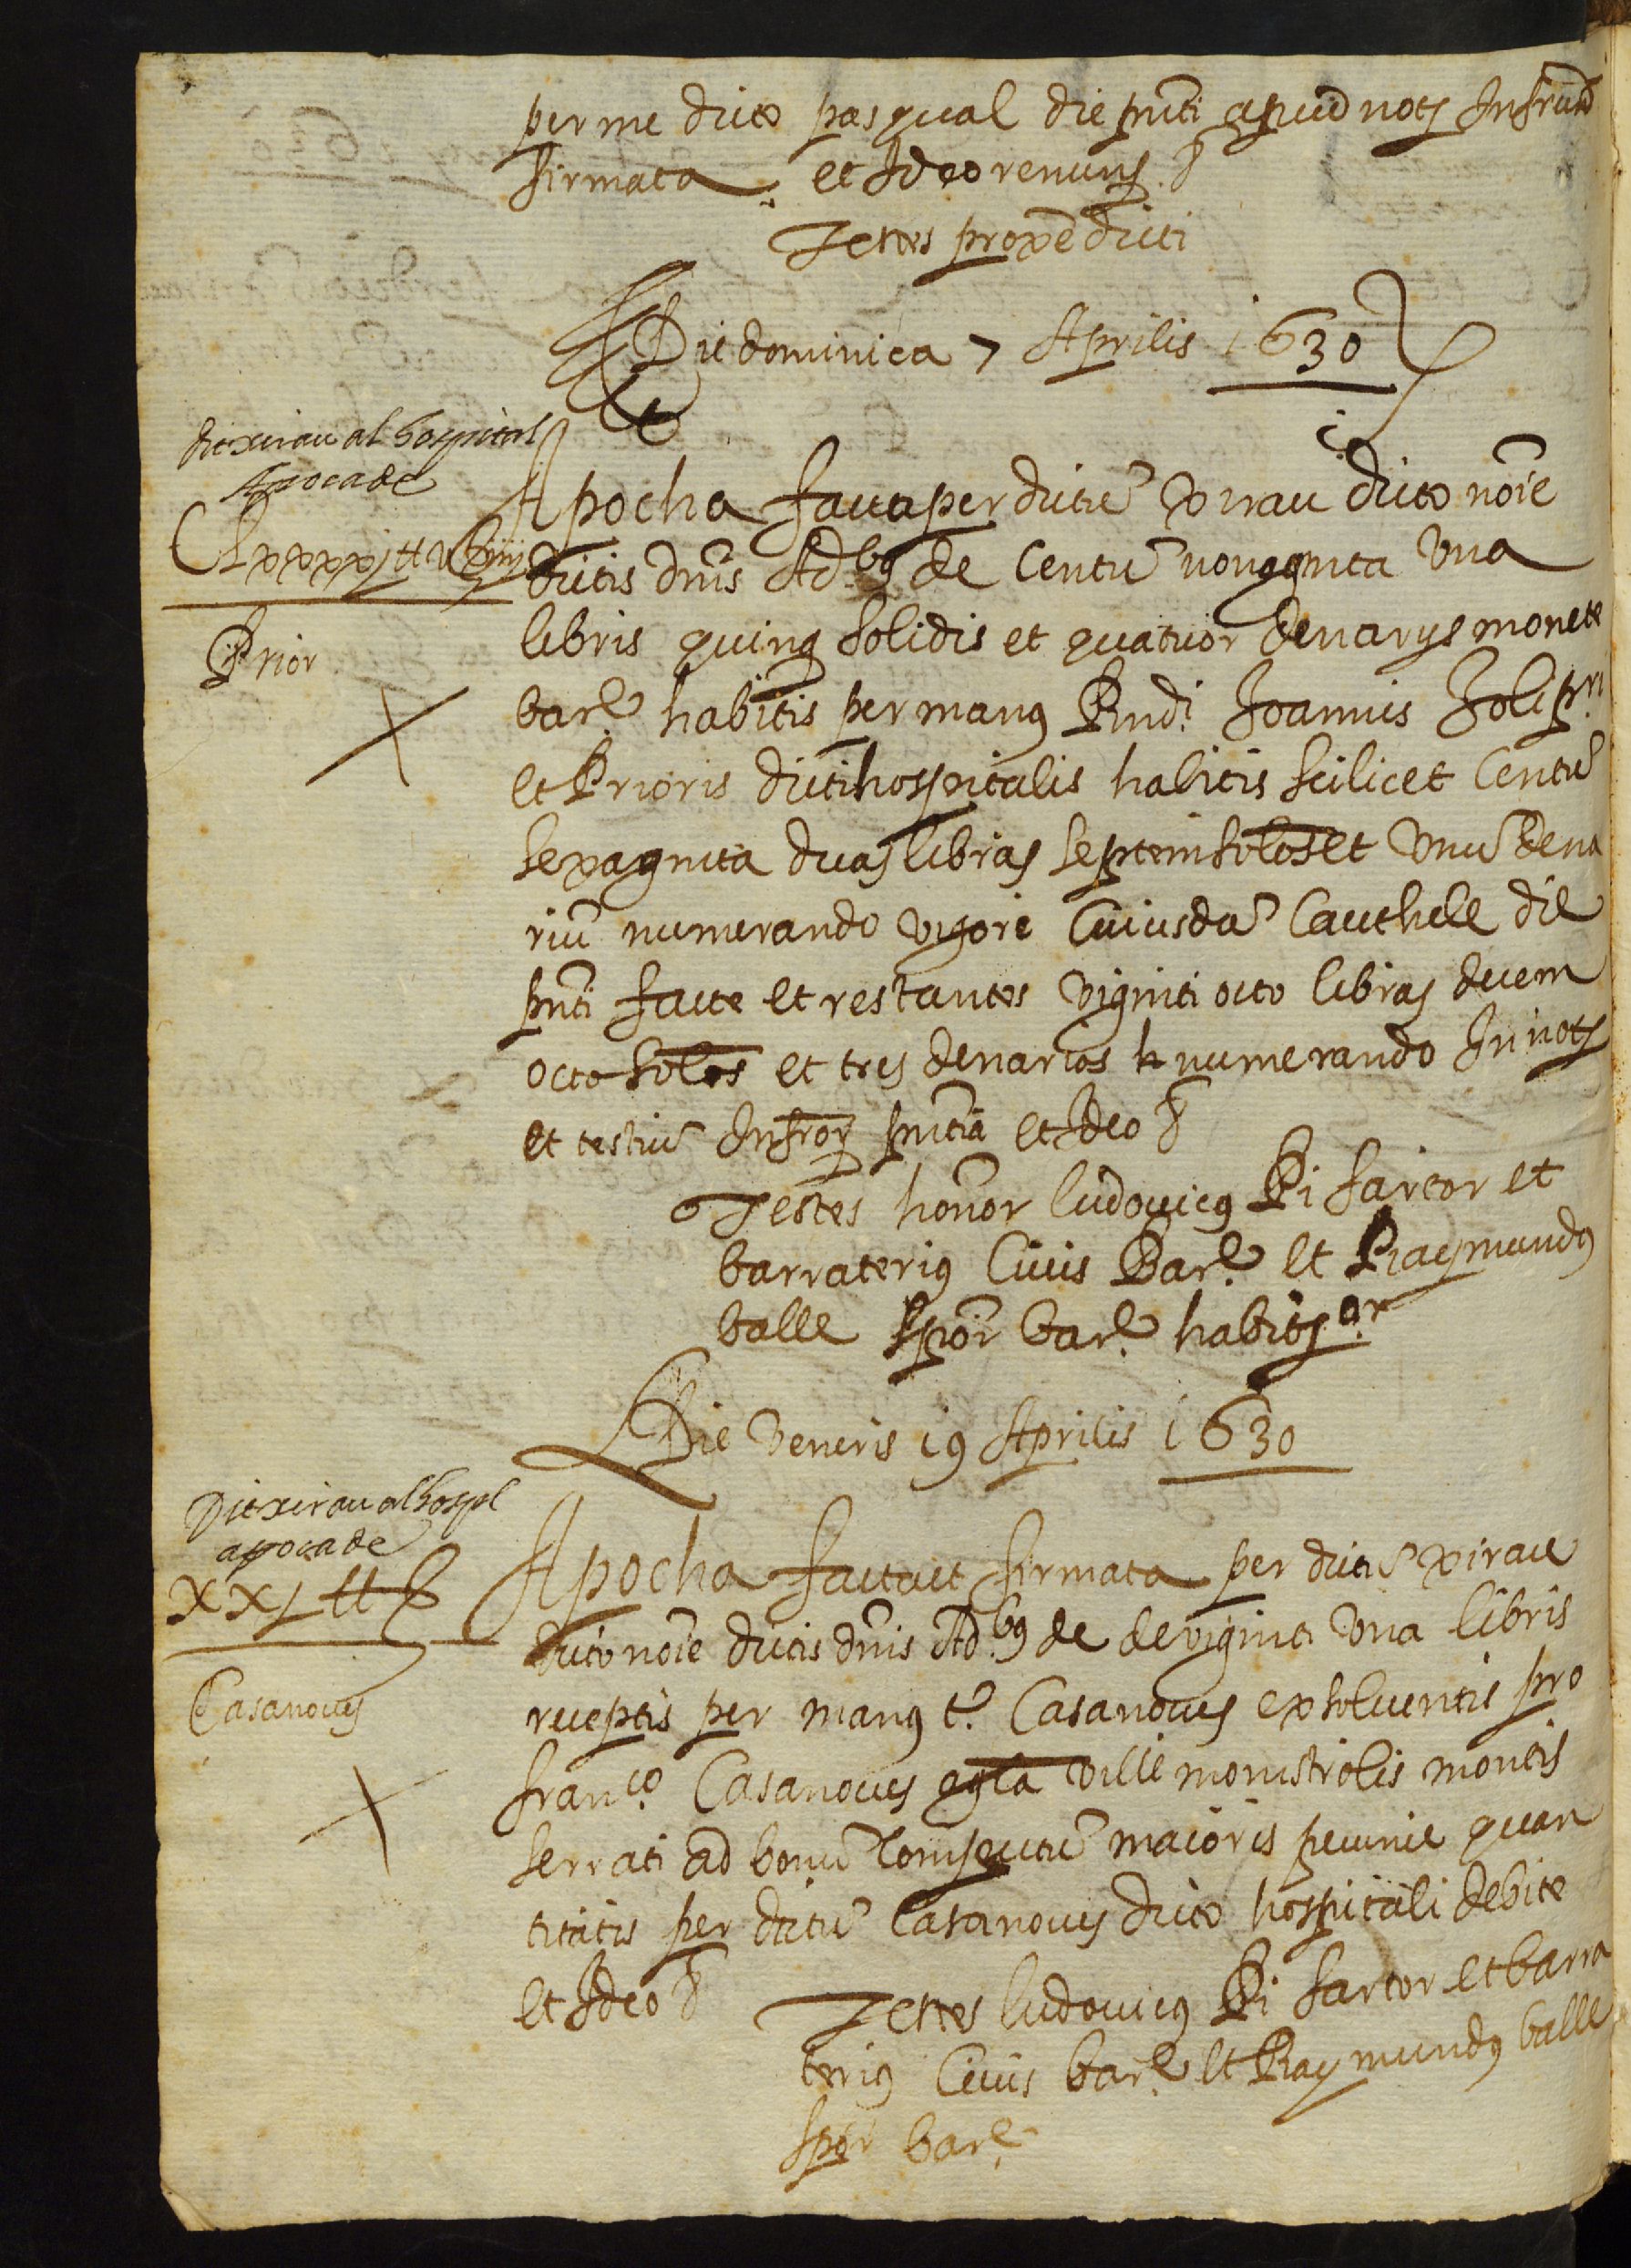 per me dicto pasqual die pnti apud nots Infrum
firmata et Ideo renuns
Testes proxe dicti
Die dominica 7 Aprilis 1630
die xirau al hospital
Apoca de
Prior
Apocha facta per dictu xirau dicto noie
dictis dnis Ad.bg de Centu nonaginta una
libris quinq solidis et quatuor denarys monete
barl habitis per manus Rndi Joannis Joli pri
et Prioris dicti hospitalis habitis scilicet Centu
sexaginta duas libras septem solos et unu dena
riu numerando vigore Cuiusda Cauthele die
pnti facte et restantes viginti octo libras decem
octo solos et tres denarios numerando In nots
et testiu Infror pntia et Ideo
Testes honor ludovicus Pi sartor et
barraterius Civis Barl et Raymundus
balle spor barl habits
Die Veneris 19 Aprilis 1630
Die xirau al hospl
apoca de
XXJ ll
Casanoves
Apocha facta et firmata per dictu xirau
dicto noie dictis dnis Ad.bg de de viginti una libris
receptis per manus t. Casanoves exsolventis pro
franco Casanoves agla ville monistrolis montis
serrati ad bonu Computu maioris pecunie quan
titatis per dictu Casanoves dicto hospitali debite
et Ideo
Testes ludovicus Pi sartor et barra
terius Civis barl et Raymundus balle
spor barl